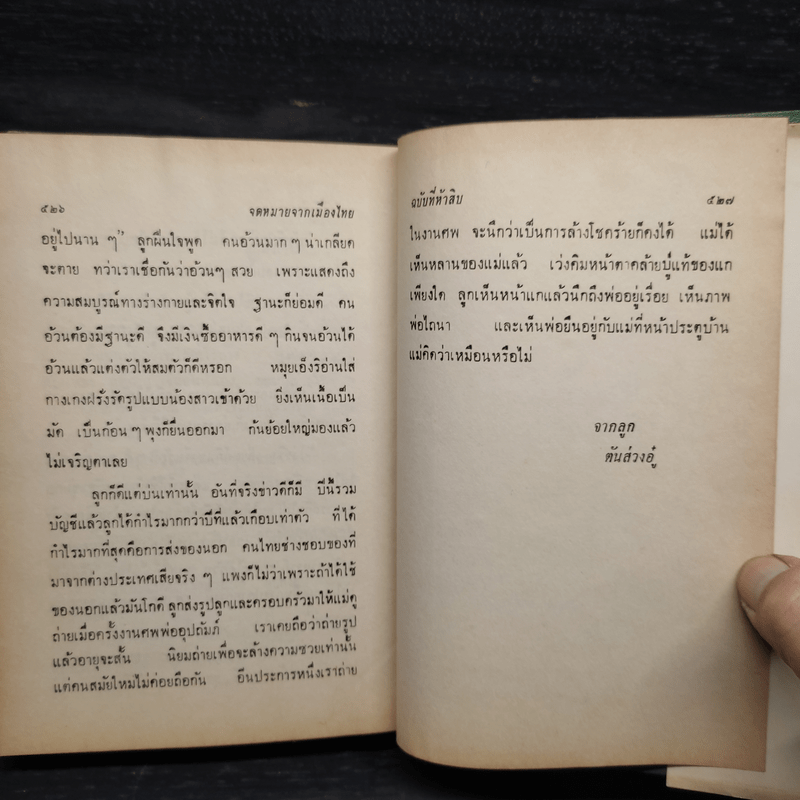 ๕๒๖ จดหมายจากเมืองไทย
อยู่ไปนาน ๆ” ลูกฝืนใจพูด คนอ้วนมาก ๆ น่าเกลียด
จะตาย ทว่าเราเชื่อกันว่าอ้วนๆ สวย เพราะแสดงถึง
ความสมบูรณ์ทางร่างกายและจิตใจ ฐานะก็ย่อมดี คน
อ้วนต้องมีฐานะดี จึงมีเงินซื้ออาหารดี ๆ กินจนอ้วนได้
อ้วนแล้วแต่งตัวให้สมตัวก็ดีหรอก หมุยเอ็งริอ่านใส่
กางเกงฝรั่งรัดรูปแบบน้องสาวเข้าด้วย ยิ่งเห็นเนื้อเป็น
มัด เป็นก้อน ๆ พุงก็ยื่นออกมา ก้นย้อยใหญ่มองแล้ว
ไม่เจริญตาเลย
ลูกก็ดีแต่บ่นเท่านั้น อันที่จริงข่าวดีก็มี ปีนี้รวม
บัญชีแล้วลูกได้กำไรมากกว่าปีที่แล้วเกือบเท่าตัว ที่ได้
กำไรมากที่สุดคือการส่งของนอก คนไทยช่างชอบของที่
มาจากต่างประเทศเสียจริง ๆ แพงก็ไม่ว่าเพราะถ้าได้ใช้
ของนอกแล้วมันโกดี ลูกส่งรูปลูกและครอบครัวมาให้แม่ดู
ถ่ายเมื่อครั้งงานศพพ่ออุปถัมภ์ เราเคยถือว่าถ่ายรูป
แล้วอายุจะสั้น นิยมถ่ายเพื่อจะล้างความซวยเท่านั้น
แต่คนสมัยใหม่ไม่ค่อยถือกัน อีกประการหนึ่งเราถ่าย
ฉบับที่ห้าสิบ ๕๒๗
ในงานศพ จะนึกว่าเป็นการล้างโชคร้ายก็คงได้ แม่ได้
เห็นหลานของแม่แล้ว เว่งคิมหน้าตาคล้ายปู่แท้ของแก
เพียงใด ลูกเห็นหน้าแกแล้วนึกถึงพ่ออยู่เรื่อย เห็นภาพ
พ่อไถนา และเห็นพ่อยืนอยู่กับแม่ที่หน้าประตูบ้าน
แม่คิดว่าเหมือนหรือไม่
จากลูก
ตันส่วงอู๋